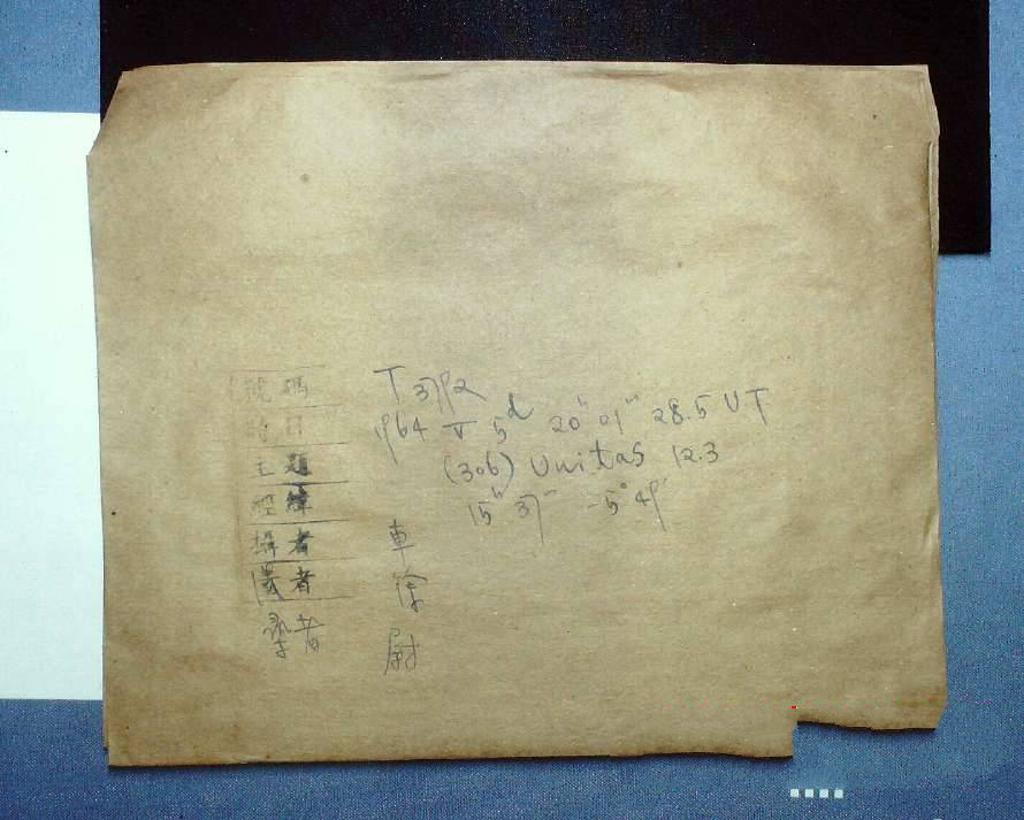 號碼 T 3792
時日 1964 V 5d 20h 01m 28.5 UT
主題 (306) Unitas 12.3
經緯 15h 37m -5° 49'
攝者 車
者 徐
者 尉